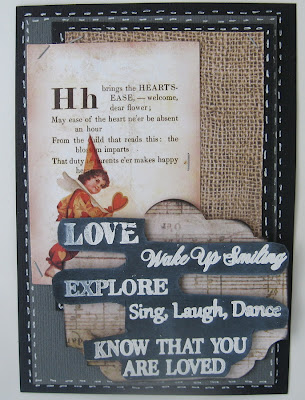 Hh brings the HEARTS-
EASE, — welcome,
dear flower;
May ease of the heart ne'er be absent
an hour
From the child that reads this: the
blossom imparts
That duty parents e'er makes happy
LOVE
Wake Up Smiling
EXPLORE
Sing, Laugh, Dance
KNOW THAT YOU
ARE LOVED